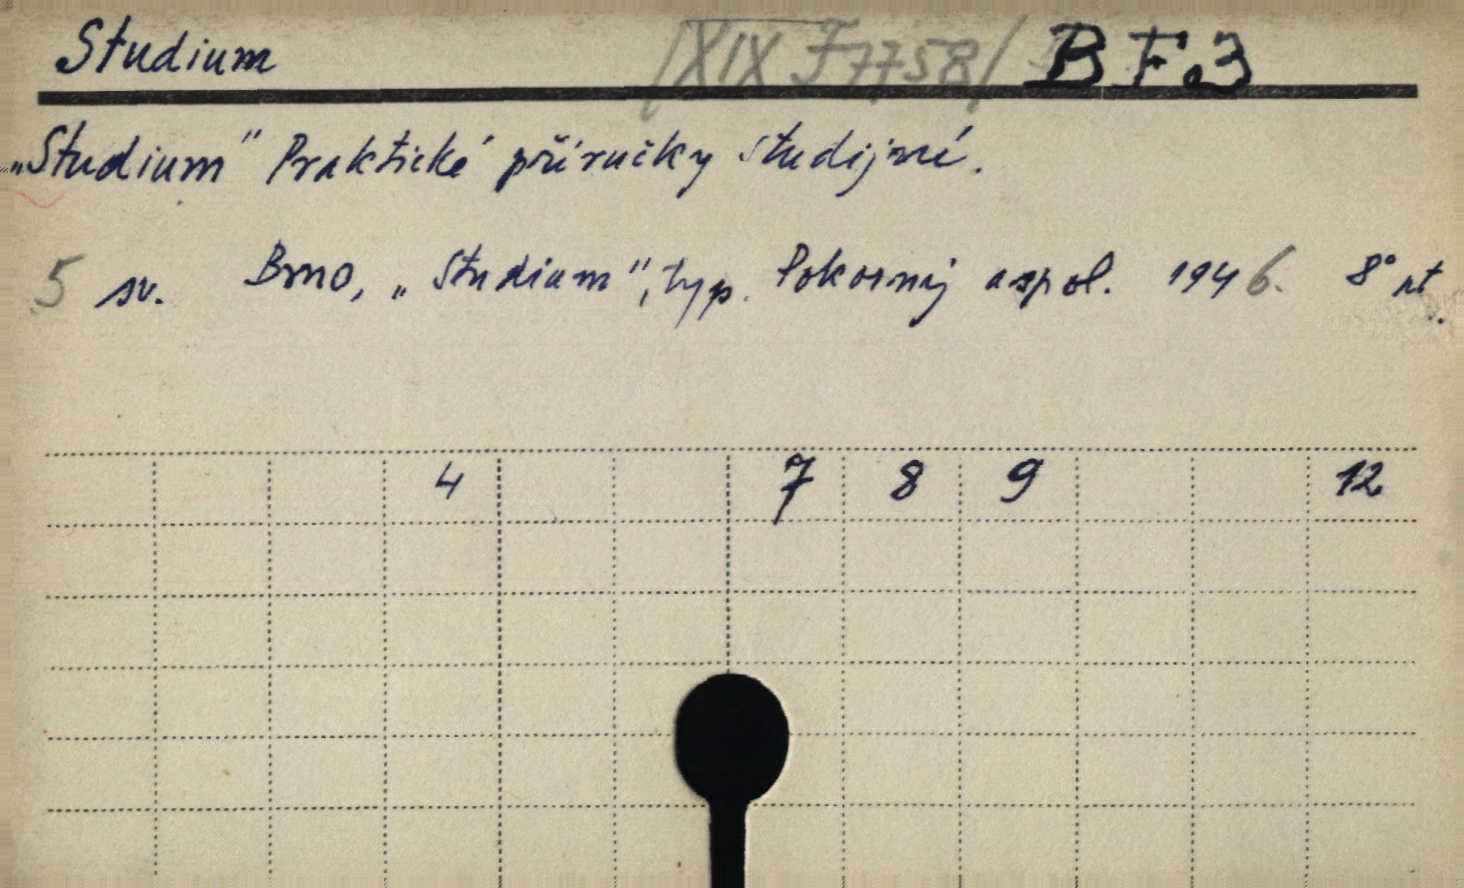 Studium /XIX F 7758/ B F.3
„Studium" Praktické příručky studijní.
5 sv. Brno, „Studium", typ. Pokorný a spol. 1946. 8°
4 7 8 9 12